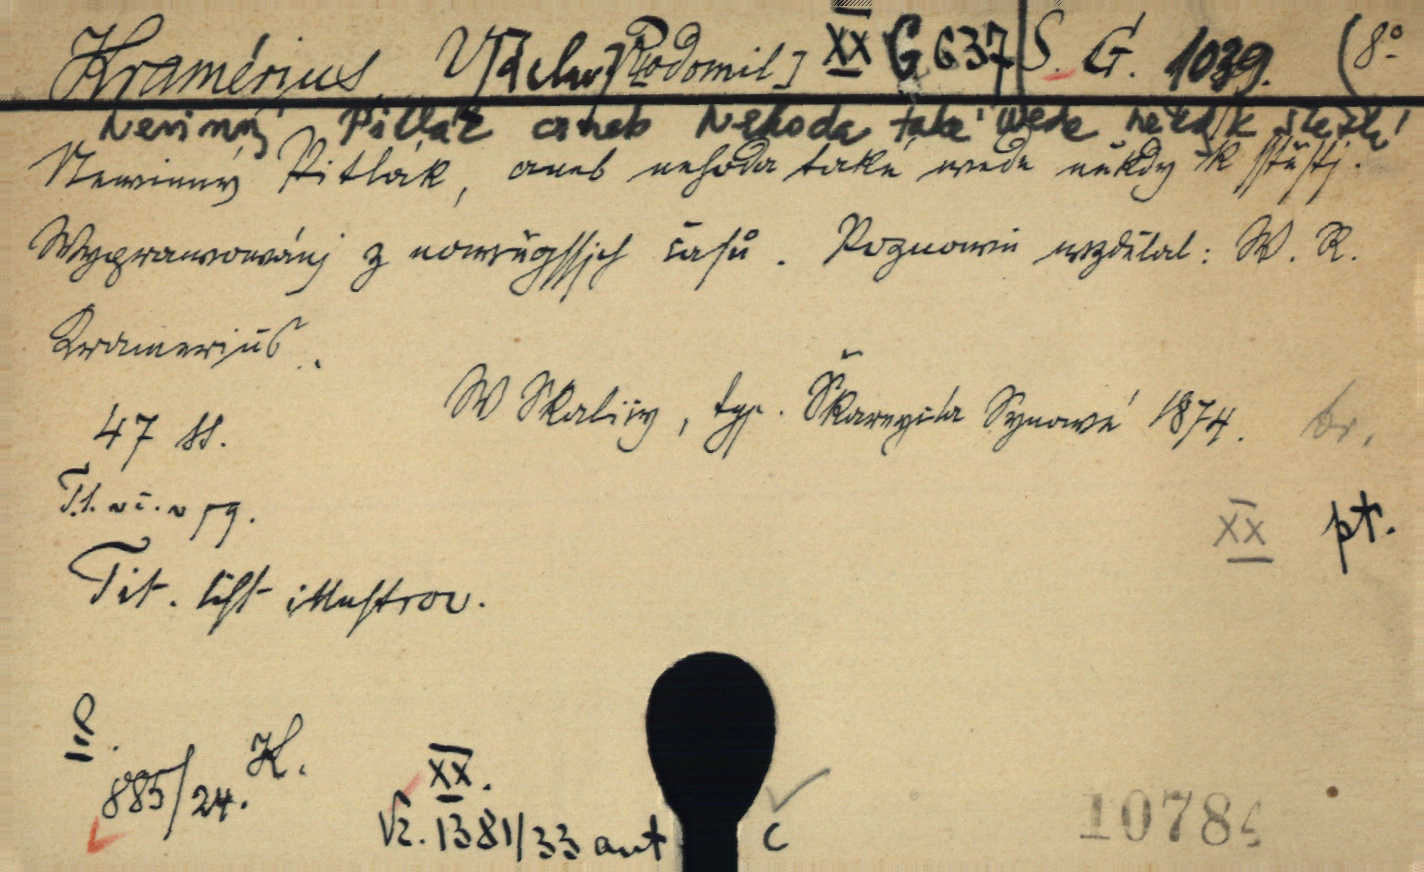 Kramérius, V[áclav Rodomil] XX G 637 S. G. 1039. (8°
Nevinný Pitlák aneb Nehoda také wede někdy k štěstí
Newinný Pitlák, aneb nehoda také wede někdy k sstěstj.
Wypravowánj z nowěgssjch časů. Poznowu wzdělal: W. R.
Kramerius.
W Skalicy, typ. Škarnycla Synowé 1874. br.
47 ss.
T.l. v č. v pg.
XX pt.
Tit. list illustrov.
P.
885/24. K.
XX.
Vz. 1381/33 ant
c
10784